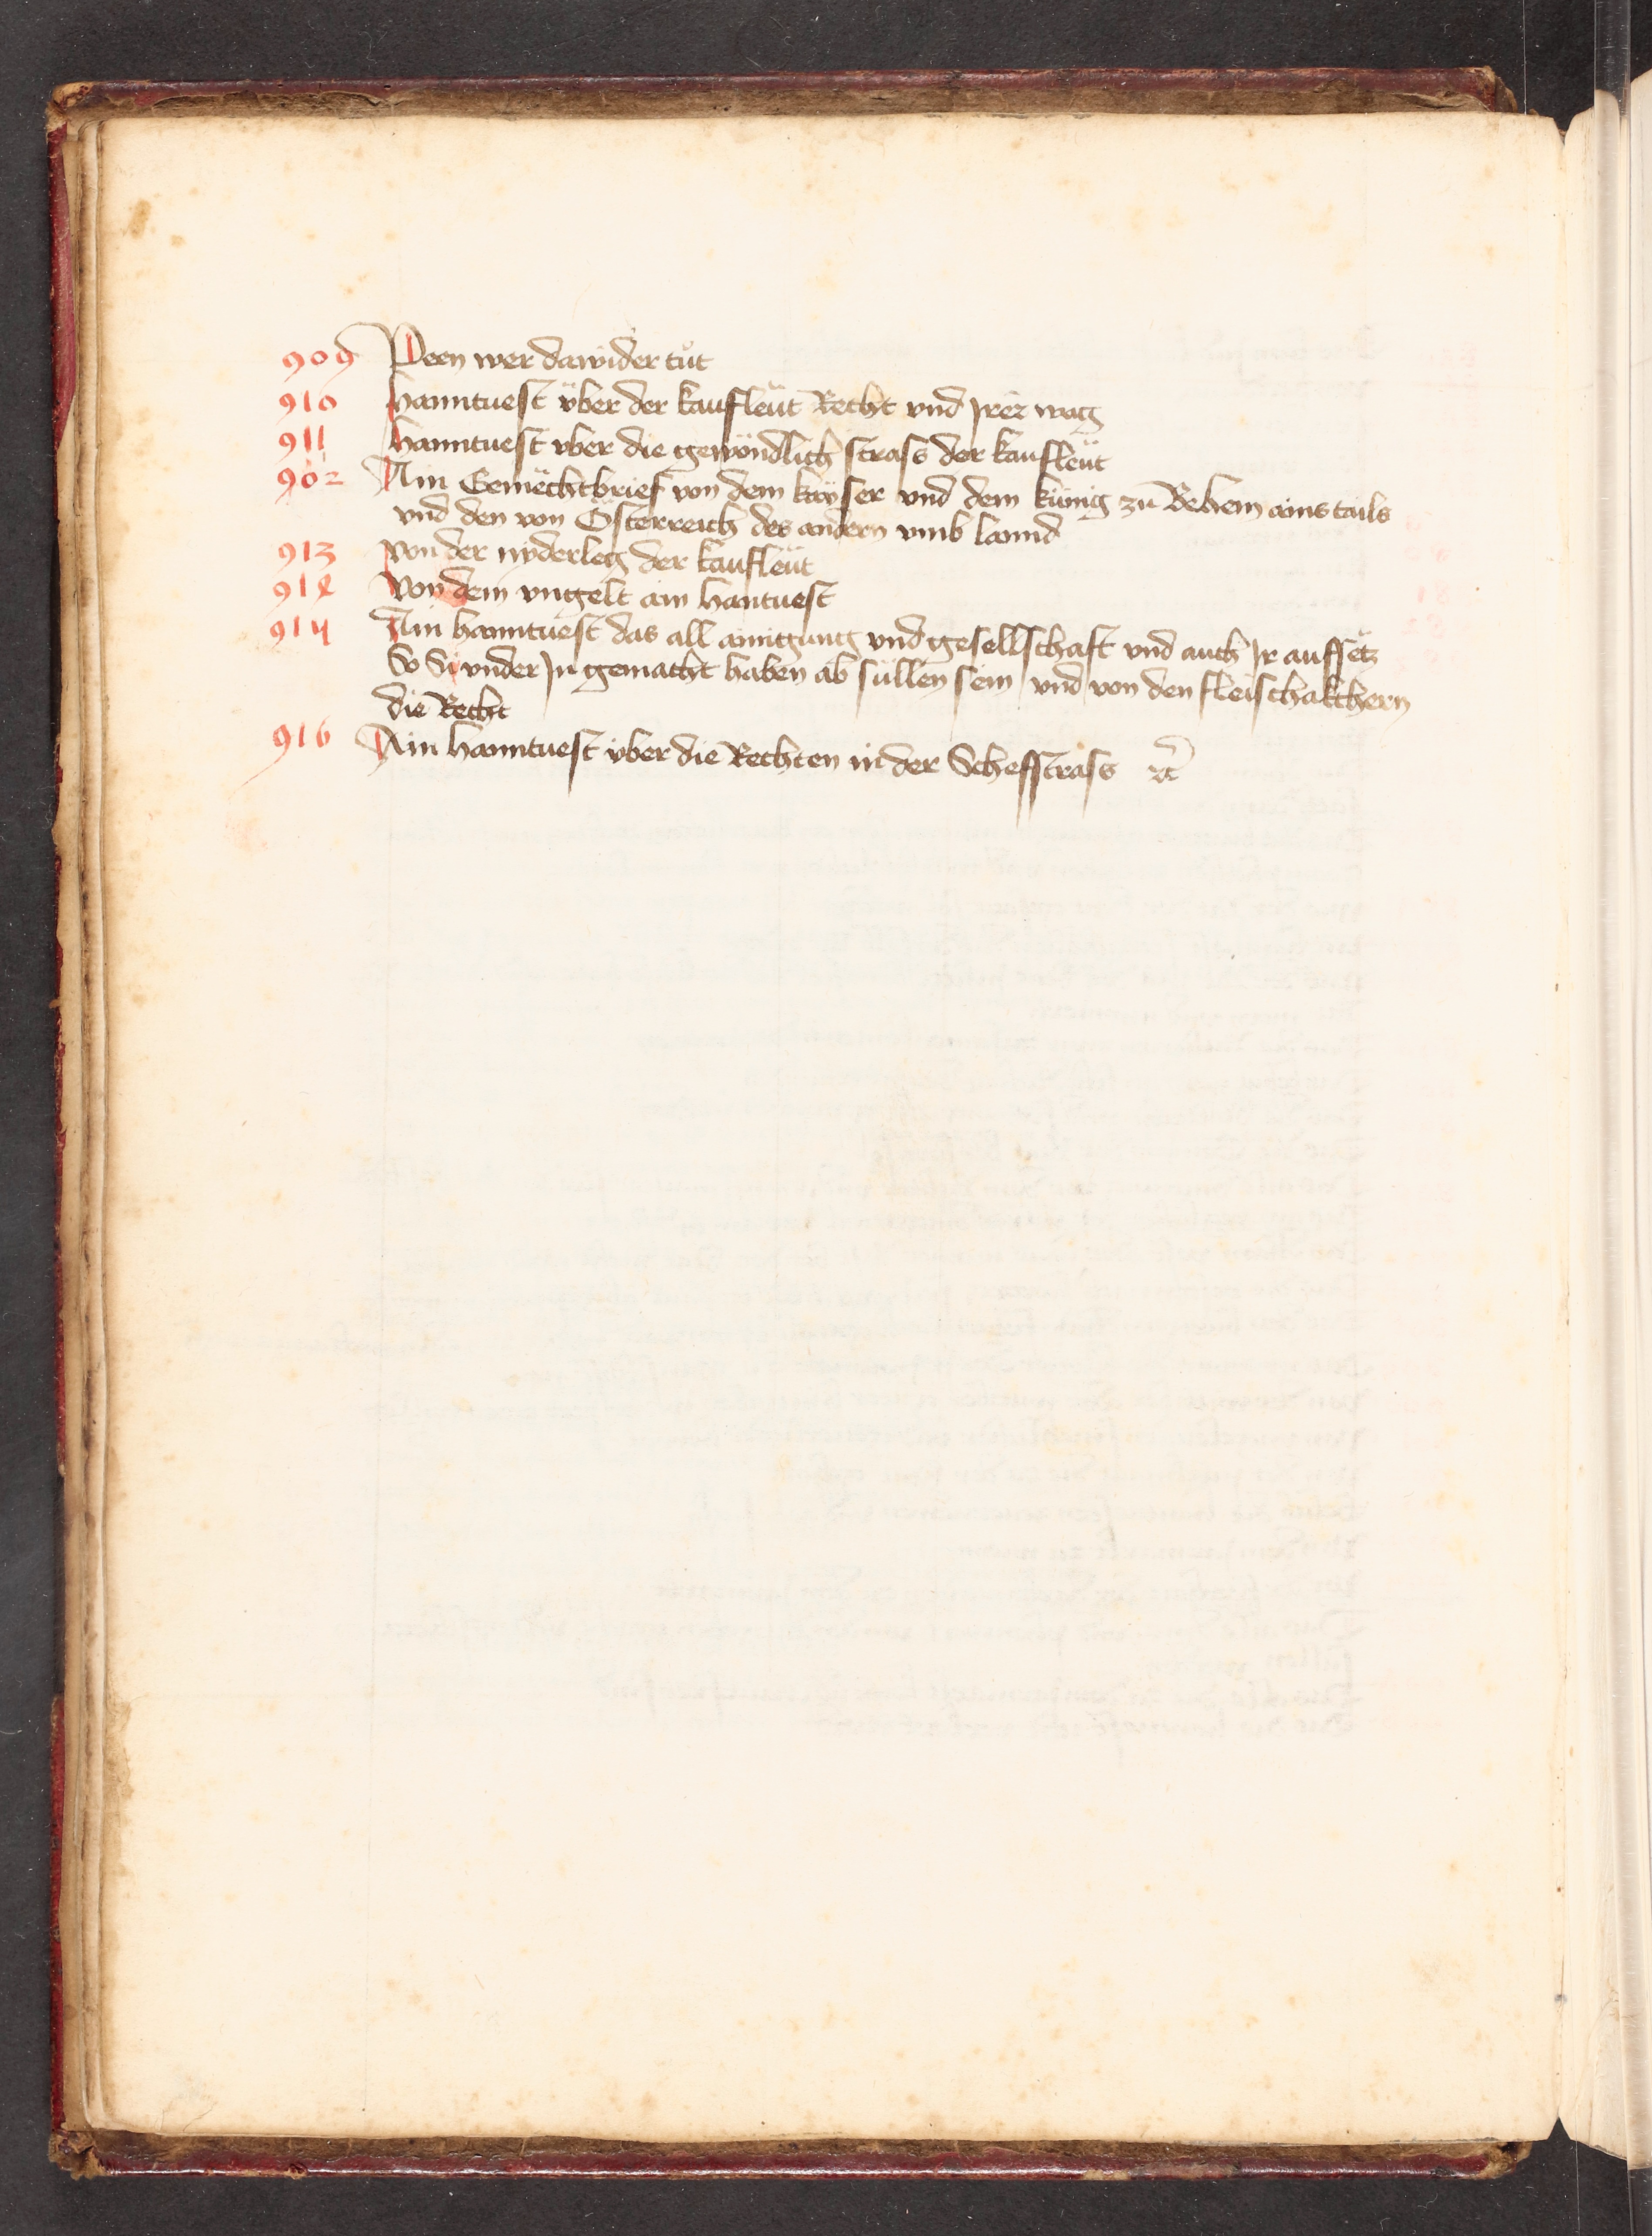 909 Peen wer dawider tůt
910 hanntuest über der kaufleüt Recht vnd Jrer wag
911 hanntuest vber die gewöndlich strass der kaufleüt
902 Ain Gemëchtbrief von dem kayser vnd dem künig zu Behem ains tails
vnd den von Österreich des andern vmb lannd
913 von der nyderleg der kaufleüt
914 von dem vngelt ain hantuest
915 Ain hanntuest das all ainigung vnd gesellschaft vnd auch Jr aufsëtz
So Si vnder Jn gemacht haben ab süllen sein vnd von den fleischakchern
die Recht
916 Ain hanntuest über die Rechten in der Scheffstrass ꝛc